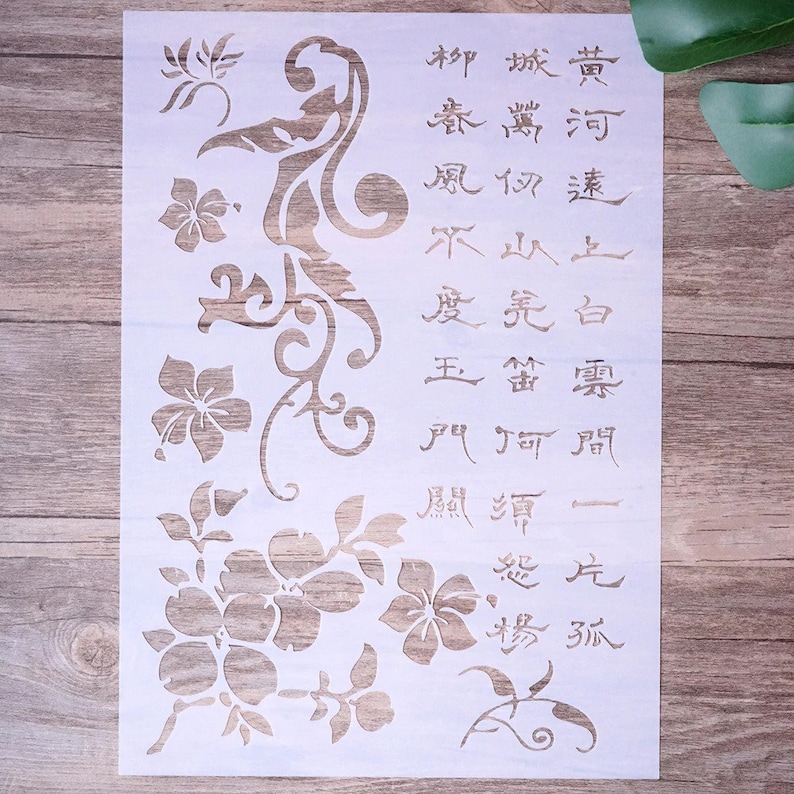 黃河遠上白雲間一片孤
城萬仞山羌笛何須怨楊
柳春風不度玉門關